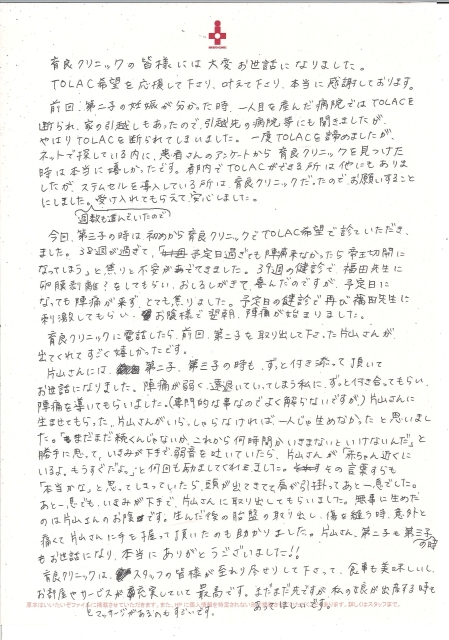 育良クリニックの皆様には大変お世話になりました。
TOLAC希望を応援して下さり、叶えて下さり、本当に感謝しております。
前回、第二子の妊娠が分かった時、一人目を産んだ病院ではTOLACを
断られ、家の引越しもあったので、引越先の病院等にも聞きましたが、
やはりTOLACを断られてしまいました。一度TOLACを諦めましたが、
ネットで探している内に、患者さんのアンケートから育良クリニックを見つけた
時は本当に嬉しかったです。都内でTOLACができる所は他にもありま
したが、ステムセルを導入している所は、育良クリニックだったのでお願いすること
にしました。受け入れてもらえて、安心しました。
週数も進んでいたので
今回、第三子の時は、初めから育良クリニックでTOLAC希望で診ていただき
ました。38週が過ぎて、「予定日過ぎても陣痛来なかったら帝王切開に
なってしまう。」と焦りと不安がありました。39週の健診で、福田先生に
卵膜剥離?をしてもらい、おしるしがきて、喜んだのですが、予定日に
なっても陣痛が来ず、とても焦りました。予定日の健診で再び福田先生に
刺激してもらい、お陰様で翌朝、陣痛が始まりました。
育良クリニックに電話したら、前回、第二子を取り出して下さった片山さんが、
出てくれてすごく嬉しかったです。
片山さんには、第二子、第三子の時も、ずっと付き添って頂いて
お世話になりました。陣痛が弱く、遠退いていってしまう私に、ずっと付き合ってもらい、
陣痛を導いてもらいました。(専門的な事なのでよく解らないですが)片山さんに
生ませてもらった、片山さんがいらっしゃらなければ、一人じゃ生めなかったと思いまし
た。「まだまだ続くんじゃないか、これから何時間かいきまないといけないんだ。」と
勝手に思って、いきみが下手で、弱音を吐いていたら、片山さんが「赤ちゃん近くに
いるよ。もうすぐだよ。」と何回も励ましてくれました。その言葉すらも
「本当かな。」と思ってしまっていたら、頭が出てきてて、肩が引掛ってあと一息でした。
あと一息でも、いきみが下手で、片山さんに取り出してもらいました。無事に生めた
のは片山さんのお陰です。生んだ後の胎盤の取り出し、傷を縫う時、意外と
痛くて片山さんに手を握って頂いたのも助かりました。片山さん、第二子も第三子
の時
もお世話になり、本当にありがとうございました!!
育良クリニックは、スタッフの皆様が至れり尽せりして下さって、食事も美味しいし、
お部屋やサービスが充実していて最高です。まだまだ先ですが、私の娘が出産する時も
とマッサージがあるのもすごいです。 あってほしいです。